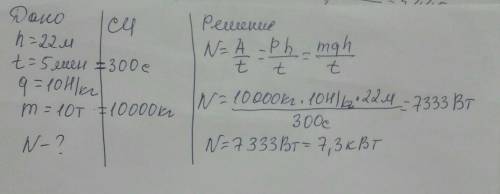 Дано
h=22м
t=5мин
g=10Н/кг
m=10т
N-?
СИ
=300с
=10000кг
Решение
N=A/t=Ph/t=mgh/t
N=10000кг·10Н/кг·22м/300с=7333Вт
N=7333Вт=7,3кВт